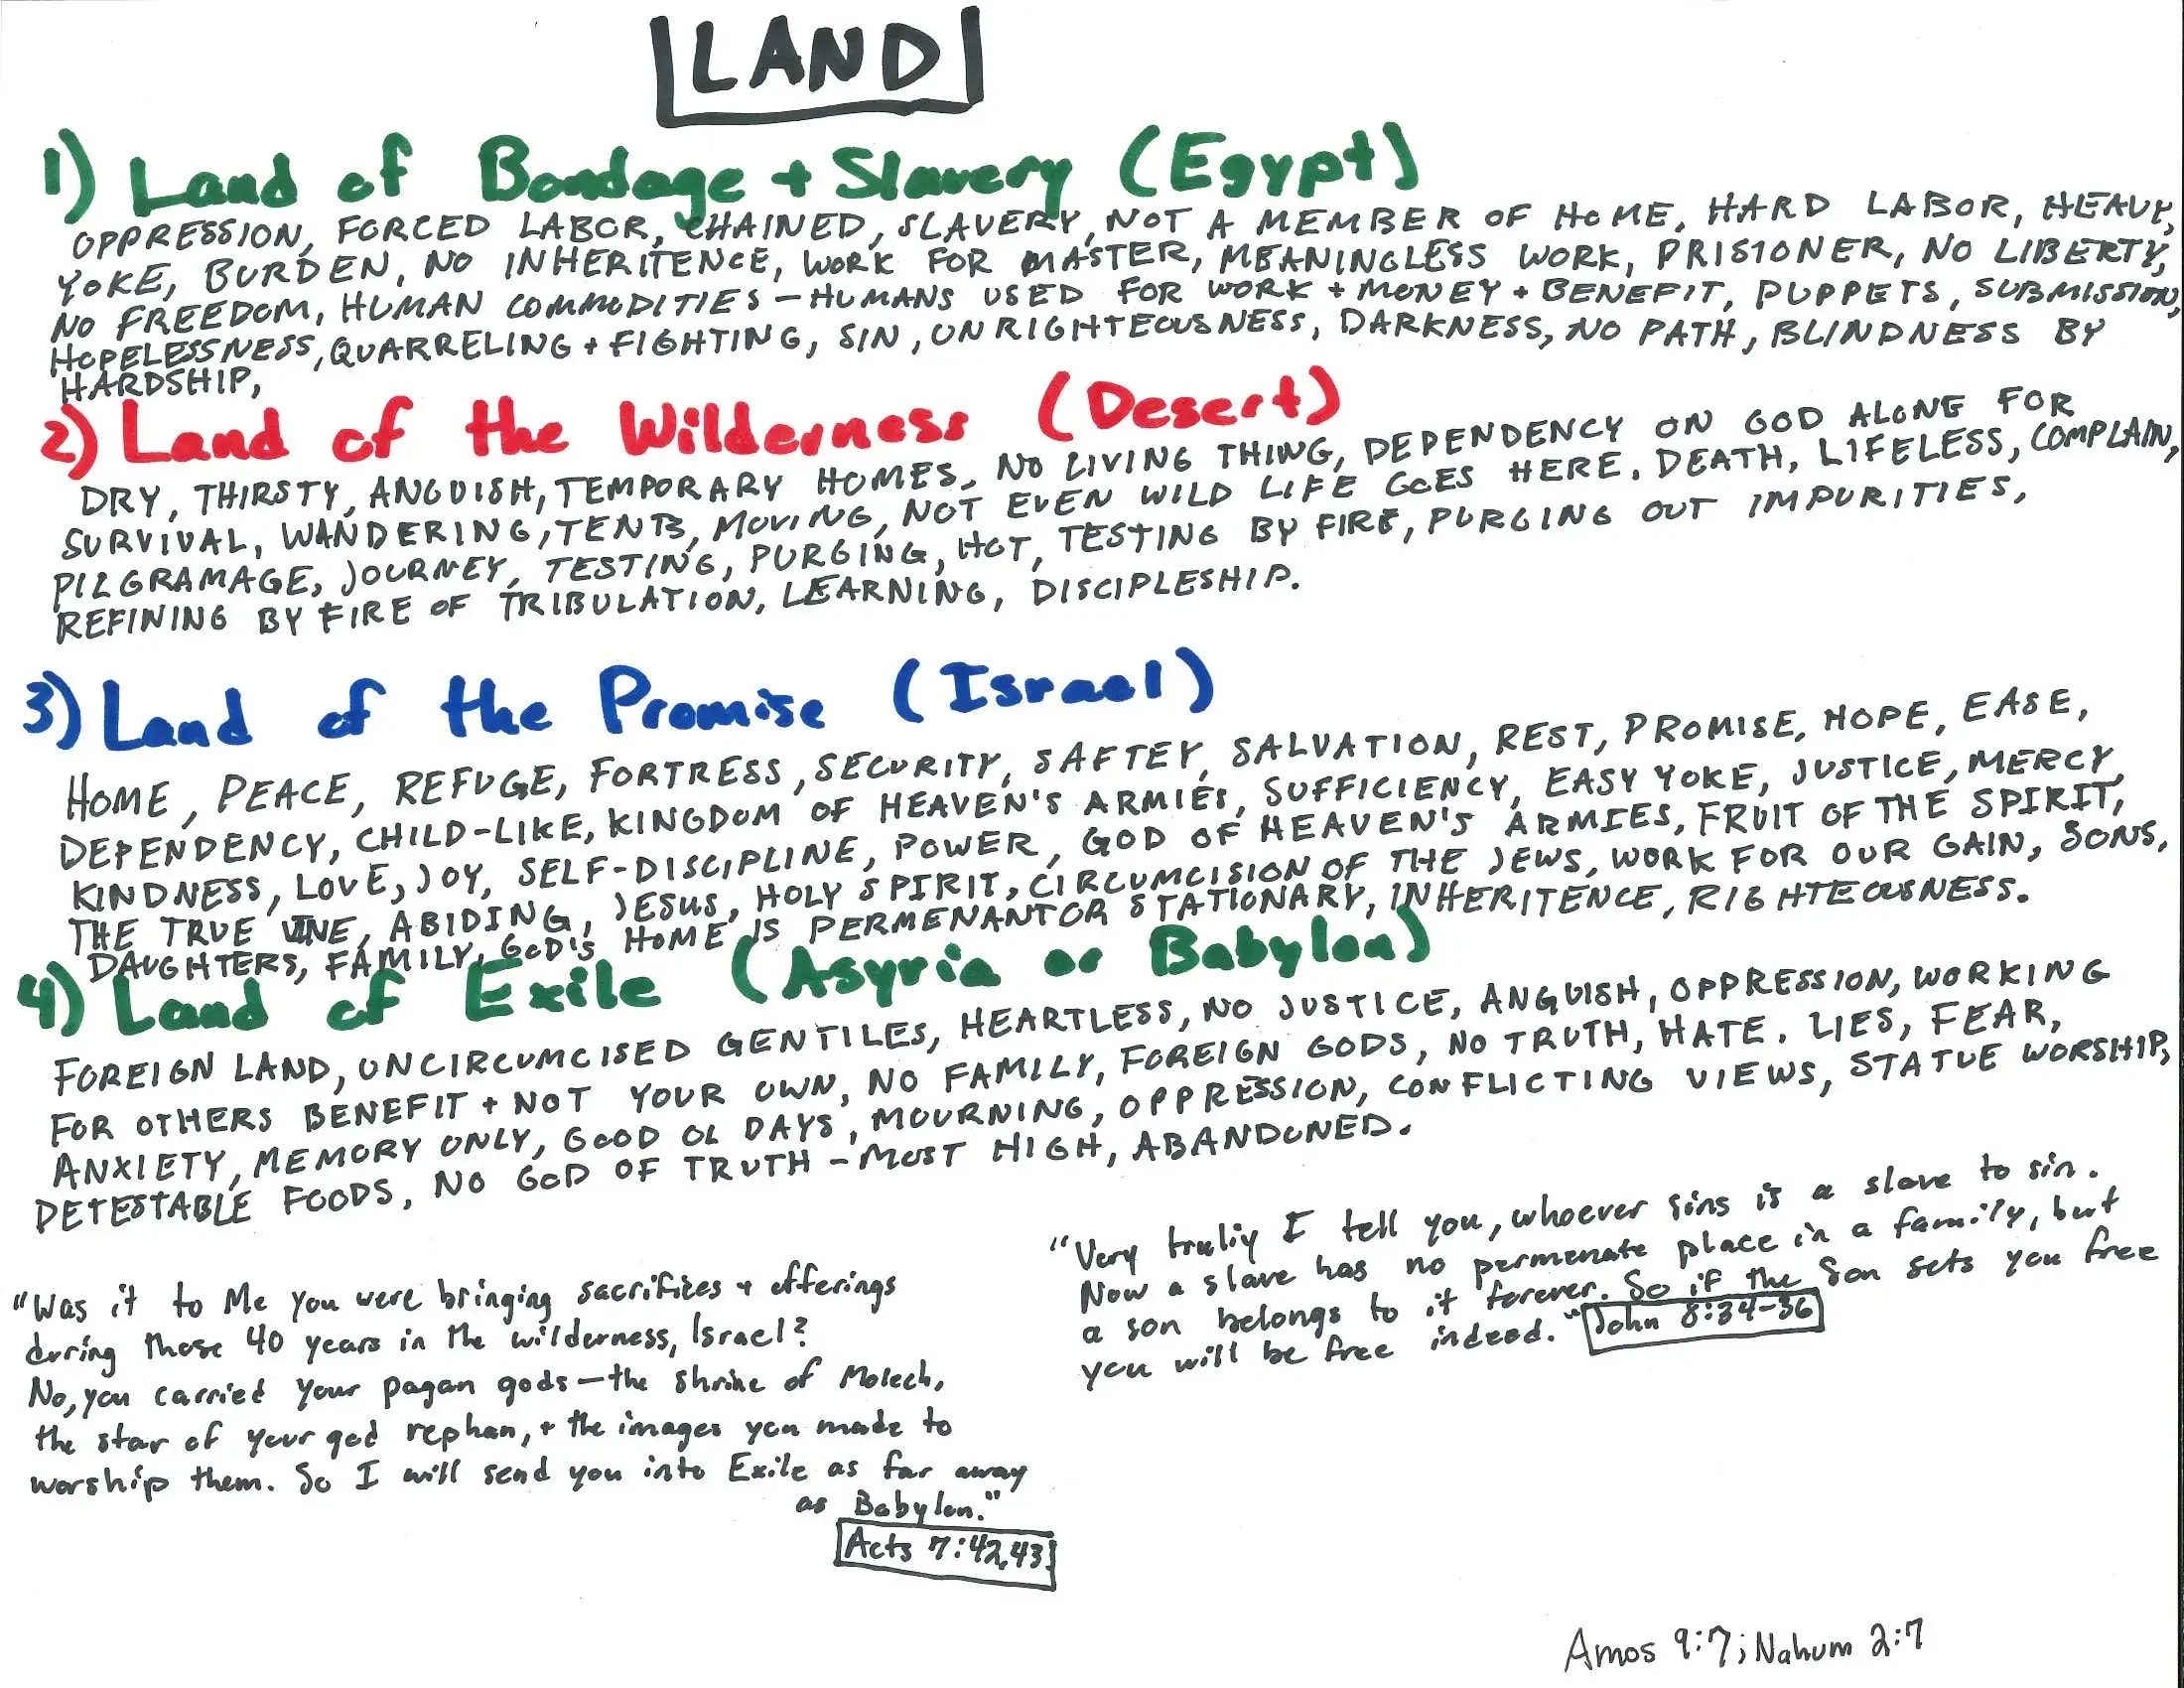 LAND
1) Land of Bondage + Slavery (Egypt)
OPPRESSION, FORCED LABOR, CHAINED, SLAVERY, NOT A MEMBER OF HOME, HARD LABOR, HEAVY,
YOKE, BURDEN, NO INHERITENCE, WORK FOR MASTER, MEANINGLESS WORK, PRISIONER, NO LIBERTY,
NO FREEDOM, HUMAN COMMODITIES - HUMANS USED FOR WORK + MONEY + BENEFIT, PUPPETS, SUBMISSION,
HOPELESSNESS, QUARRELING + FIGHTING, SIN, UNRIGHTEOUSNESS, DARKNESS, NO PATH, BLINDNESS BY
HARDSHIP,
2) Land of the Wilderness (Desert)
DRY, THIRSTY, ANGUISH, TEMPORARY HOMES, NO LIVING THING, DEPENDENCY ON GOD ALONE FOR
SURVIVAL, WANDERING, TENTS, MOVING, NOT EVEN WILD LIFE GOES HERE. DEATH, LIFELESS, COMPLAIN,
PILGRAMAGE, JOURNEY, TESTING, PURGING, HOT, TESTING BY FIRE, PURGING OUT IMPURITIES,
REFINING BY FIRE OF TRIBULATION, LEARNING, DISCIPLESHIP.
3) Land of the Promise (Israel)
HOME, PEACE, REFUGE, FORTRESS, SECURITY, SAFTEY, SALVATION, REST, PROMISE, HOPE, EASE,
DEPENDENCY, CHILD-LIKE, KINGDOM OF HEAVEN'S ARMIES, SUFFICIENCY, EASY YOKE, JUSTICE, MERCY,
KINDNESS, LOVE, JOY, SELF-DISCIPLINE, POWER, GOD OF HEAVEN'S ARMIES, FRUIT OF THE SPIRIT,
THE TRUE VINE, ABIDING, JESUS, HOLY SPIRIT, CIRCUMCISION OF THE JEWS, WORK FOR OUR GAIN, SONS,
DAUGHTERS, FAMILY, GOD'S HOME IS PERMENANT OR STATIONARY, INHERITENCE, RIGHTEOUSNESS.
4) Land of Exile (Asyria or Babylon)
FOREIGN LAND, UNCIRCUMCISED GENTILES, HEARTLESS, NO JUSTICE, ANGUISH, OPPRESSION, WORKING
FOR OTHERS BENEFIT + NOT YOUR OWN, NO FAMILY, FOREIGN GODS, NO TRUTH, HATE. LIES, FEAR,
ANXIETY, MEMORY ONLY, GOOD OL DAYS, MOURNING, OPPRESSION, CONFLICTING VIEWS, STATUE WORSHIP,
DETESTABLE FOODS, NO GOD OF TRUTH - MOST HIGH, ABANDONED.
"Was it to Me you were bringing sacrifices + offerings
during those 40 years in the wilderness, Israel?
No, you carried your pagan gods - the shrine of Molech,
the star of your god rephan, + the images you made to
worship them. So I will send you into Exile as far away
as Babylon."
Acts 7:42,43
"Very truliy I tell you, whoever sins is a slave to sin.
Now a slave has no permenate place in a family, but
a son belongs to it forever. So if the Son sets you free
you will be free indeed." John 8:34-36
Amos 9:7; Nahum 2:7